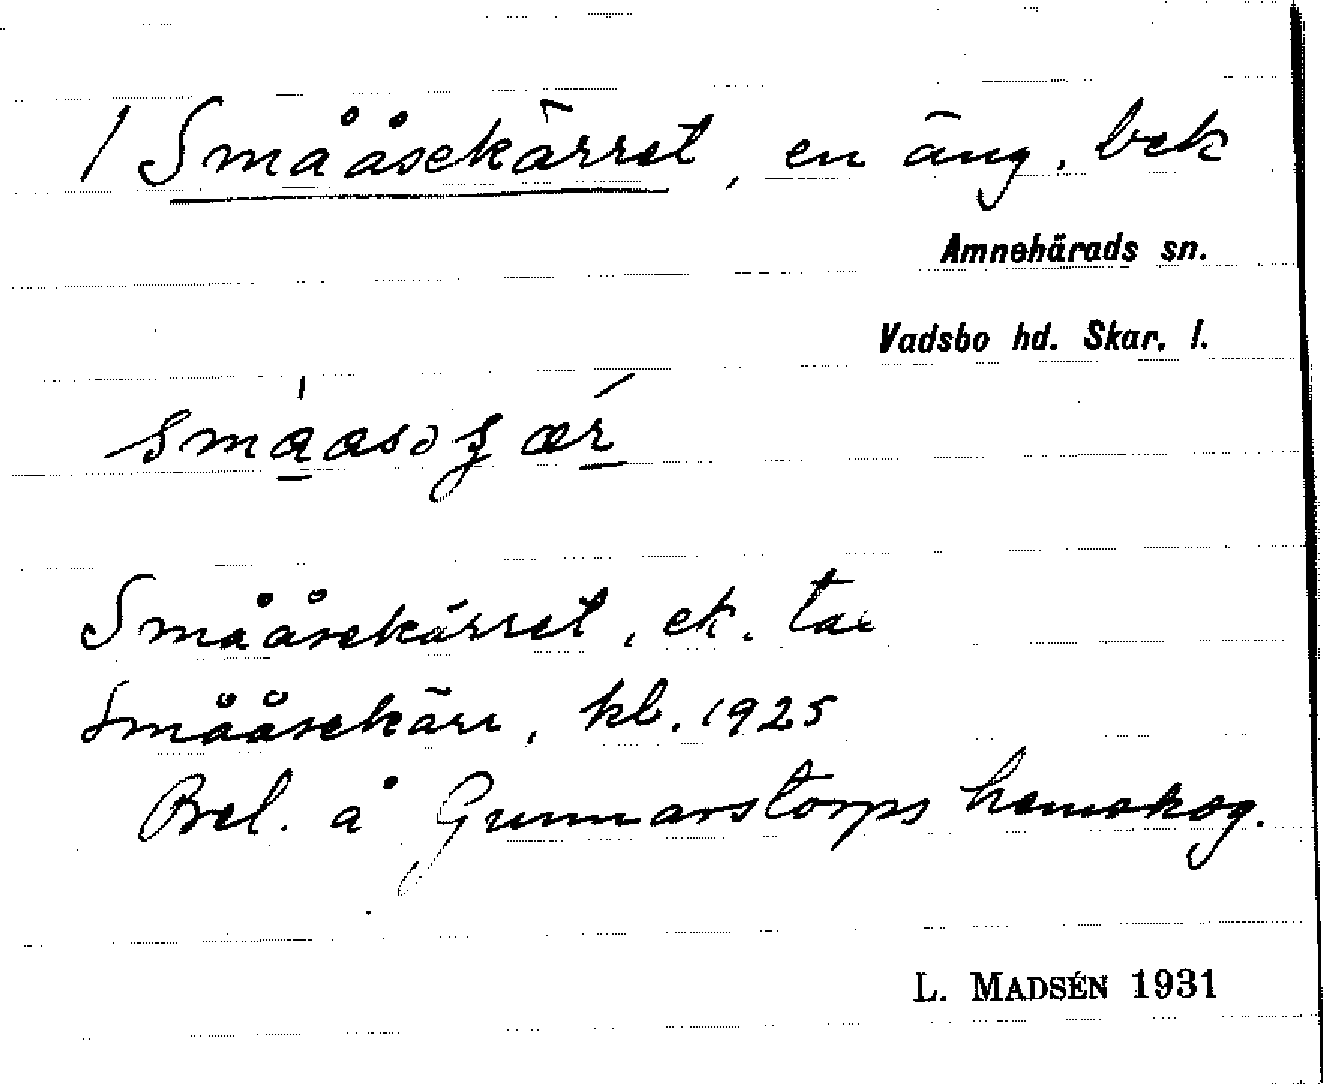 / Småäsekärret, en äng, bek
Amnehärads sn.
Vadsbo hd. Skar. l.
Smååsekärret, ek. ta
Smååsekärr, kl. 1925
Bel. å Gunnarstorps hemskog.
L. MADSÉN 1931